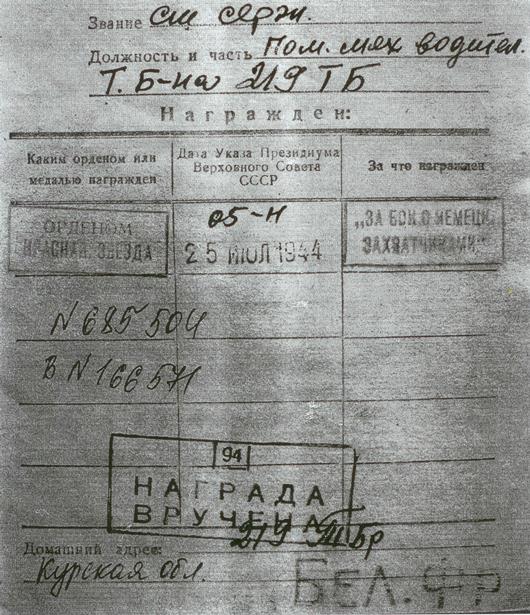 Звание ст серж.
Должность и часть Пом. мех водител.
Т. Б-на 219 ТБ
Награжден:
Каким орденом или медалью награжден
Дата Указа Президиума Верховного Совета СССР
За что награжден
ОРДЕНОМ
КРАСНАЯ ЗВЕЗДА
05-Н
25 ИЮЛ 1944
„ЗА БОИ С НЕМЕЦК.
ЗАХВАТЧИКАМИ"
N 685504
В N 166571
94
НАГРАДА
ВРУЧЕНА
219 ТБр
Домашний адрес:
Курская обл.
БЕЛ. ФР